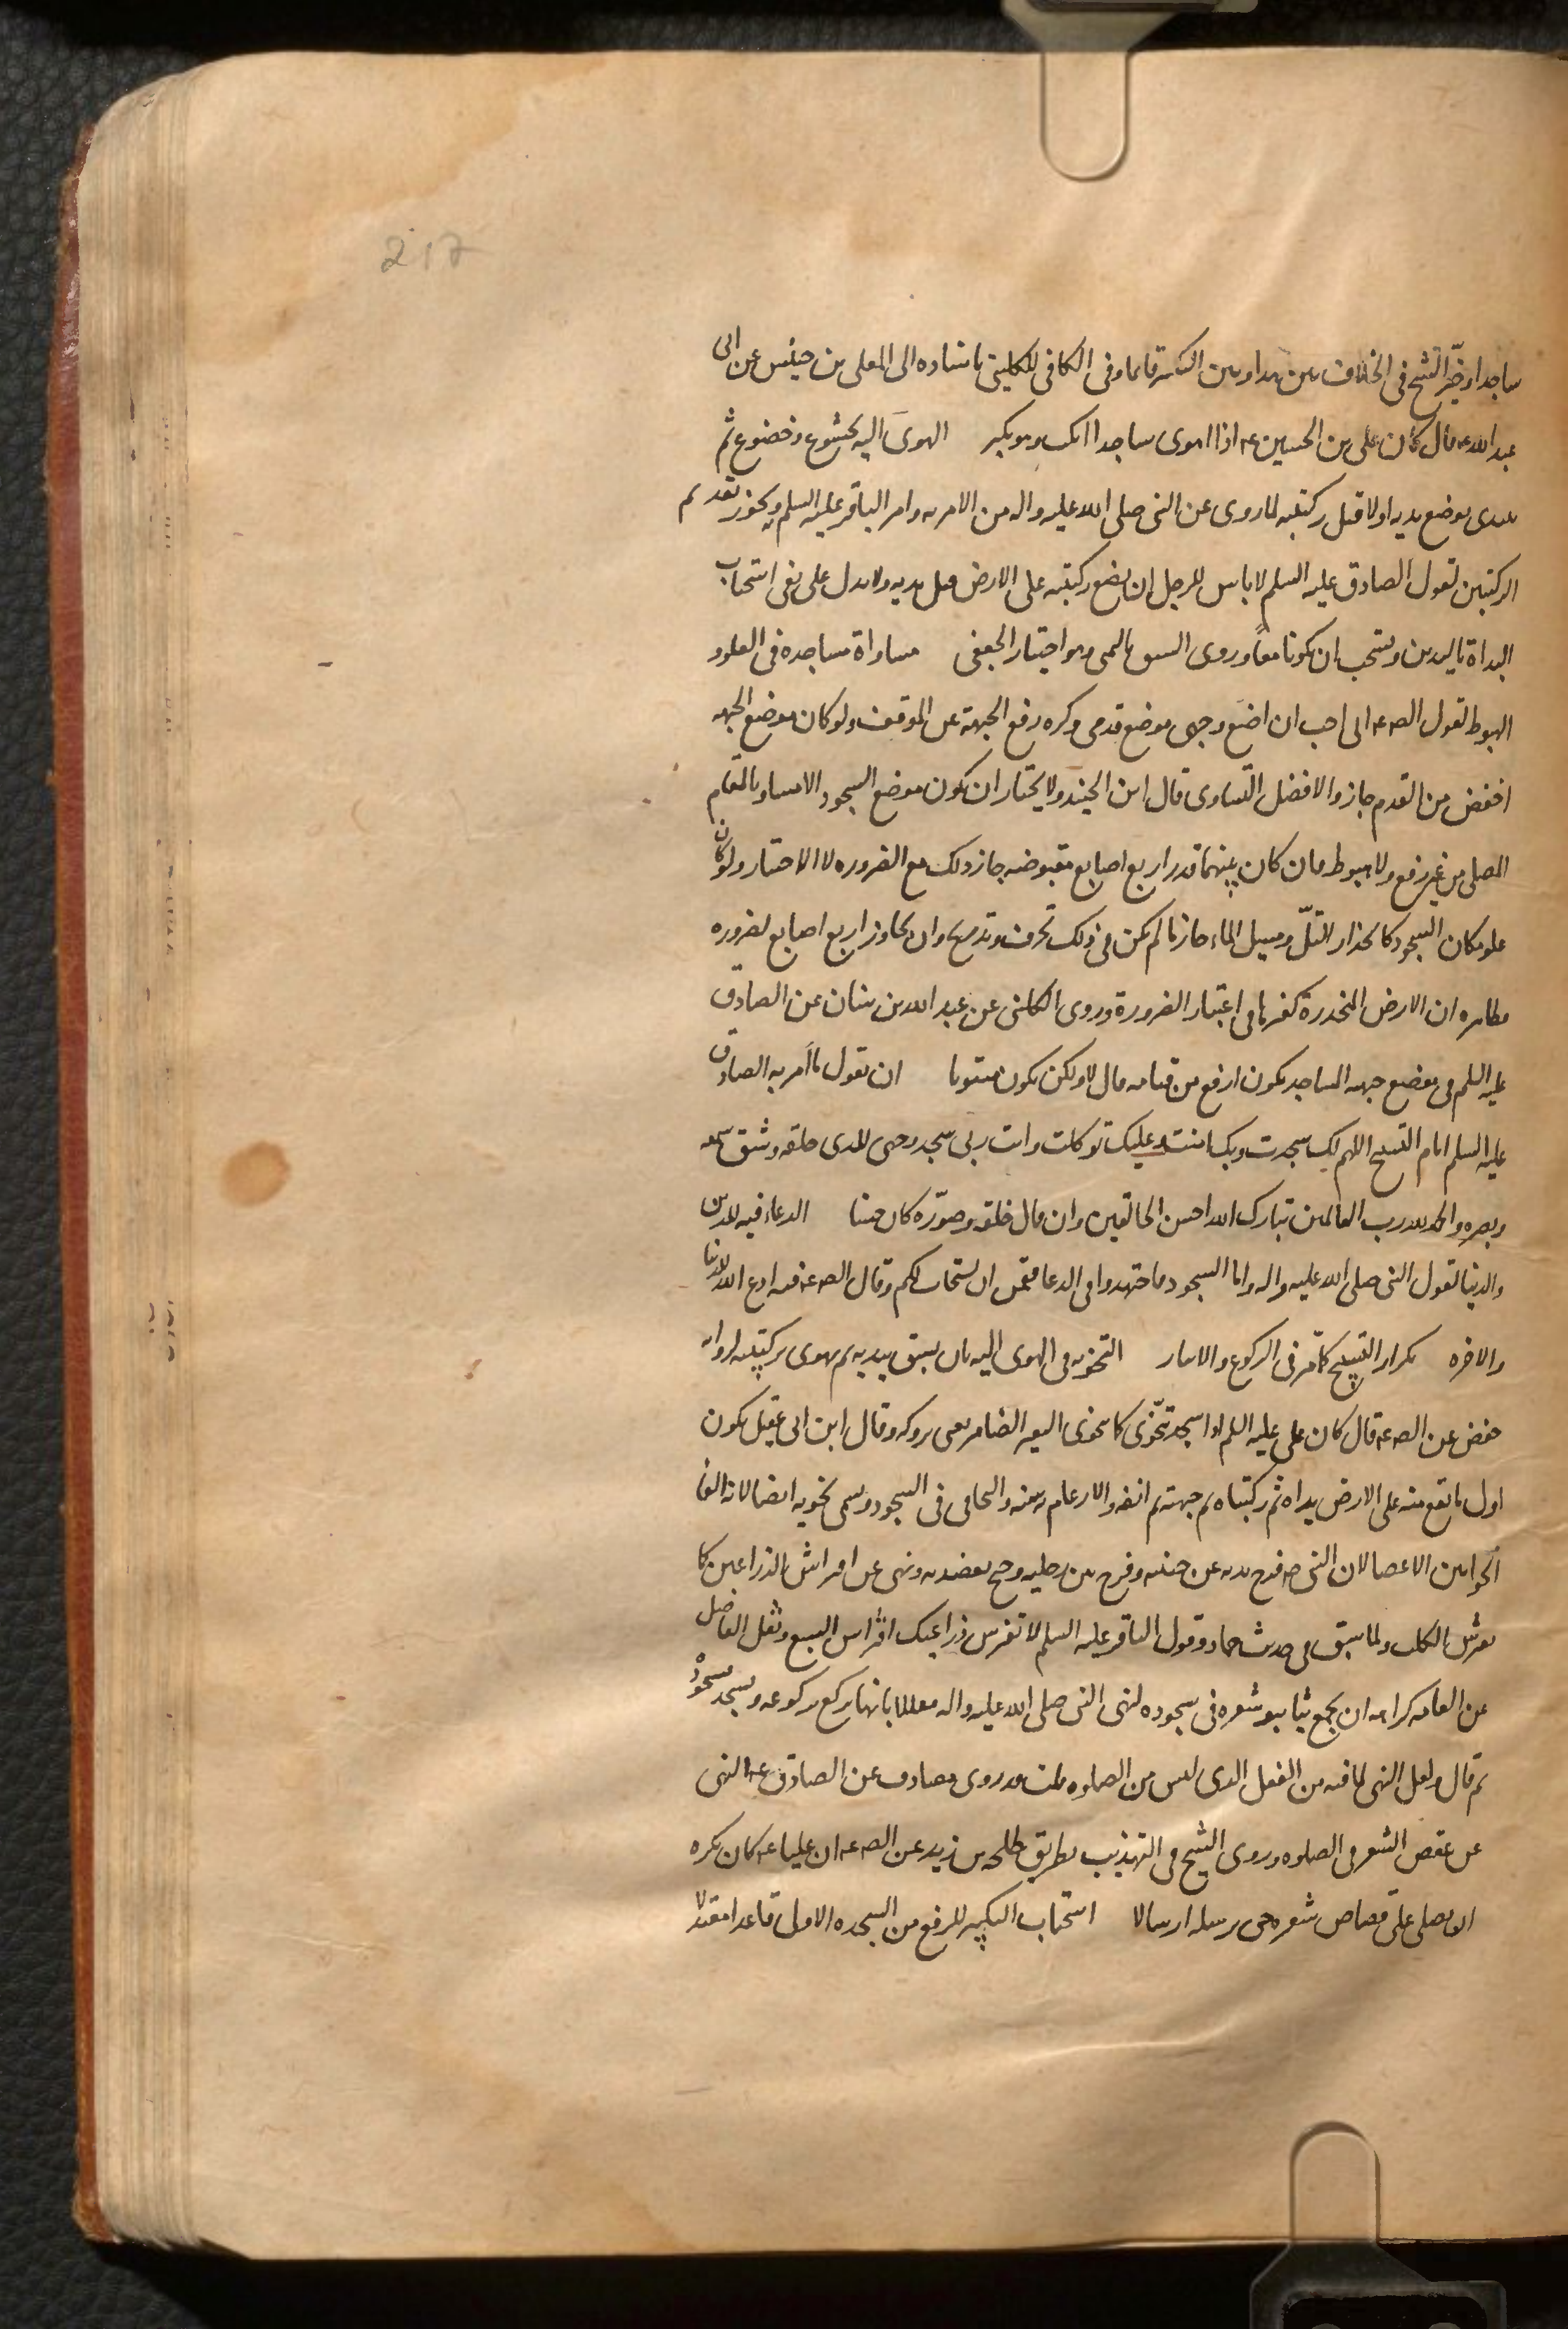 217
ساجدا وخيّر الشيخ في الخلاف بين هذا وبين التكبير قائما وفي الكافي للكليني باسناده الى المعلى بن خنيس عن ابي
عبد الله عه قال كان علي بن الحسين عه اذا اهوى ساجدا انكب وهو يكبر الهوىَ اليه بخشوع وخضوع ثم
يبدى بوضع يديه اولا قبل ركبتيه لما روى عن النبي صلى الله عليه واله من الامر به وامر الباقر عليه السلم ويجوز تقديم
الركبتين لقول الصادق عليه السلم لا باس للرجل ان يضع ركبتيه على الارض قبل يديه ولا يدل على نفى استحباب
البداة باليدين ويستحب ان يكونا معاً وروى السبق باليمنى وهو اختيار الجعفى مساواة مساجده في العلو و
الهبوط لقول الصه عه انى احب ان اضع وجهى موضع قدمى وكره رفع الجبهة عن الموقف ولو كان موضع الجبهه
اخفض من القدم جاز والافضل التساوى قال ابن الجنيد ولا يختار ان يكون موضع السجود الا مساويا لمقام
المصلى من غير رفع ولا هبوط فان كان بينهما قدر اربع اصابع مقبوضه جاز ذلك مع الضروره لا الاختيار ولو كان
علو مكان السجود كانحدار التلّ ومسيل الماء جاز ما لم يكن في ذلك تحرف وتدريج وان تجاوز اربع اصابع لضروره
فظاهره ان الارض المنحدرة كغيرها في اعتبار الضرورة وروى الكلينى عن عبد الله بن سنان عن الصادق
عليه السلم في موضع جبهه الساجد يكون ارفع من قيامه قال لا ولكن يكون مستويا ان يقول ما اَمر به الصادق
عليه السلم امام التسبيح اللهم لك سجدت وبك امنت وعليك توكلت وانت ربى سجد وجهى للذى خلقه وشق سمعه
وبصره والحمد لله رب العالمين تبارك الله احسن الخالقين وان قال خلقه وصوّره كان حسنا الدعاء فيه للدين
والدنيا لقول النبي صلى الله عليه واله واما السجود فاجتهدوا في الدعا فقمن ان يستجاب لكم وقال الصه عه فيه ادع الله للدنيا
والاخره تكرار التسبيح كما مّر في الركوع والاذكار التخويه في الهوى اليه بان يسبق بيديه ثم يهوى بركبتيه لروايه
حفص عن الصه عه قال كان على عليه السلم اذا سجد تخّوى كما يتخوى البعير الضامر يعنى بروكه وقال ابن ابى عقيل يكون
اول ما تقع منه على الارض يداه ثم ركبتاه ثم جبهته ثم انفه والارغام بمعنه والتجافى في السجود ويسمى تخويه ايضا لانه القا
الخوا بين الاعضا لان النبي صه فرج يديه عن جنبيه وفرج بين رجليه وجنح بعضديه ونهى عن افتراش الذراعين كما
يفترش الكلب ولما سبق في حديث حماد وقول الباقر عليه السلم لا تفترش ذراعيك افتراس السبع ونقل الفاضل
عن العامه كراهه ان يجمع ثيابه وشعره في سجوده لنهى النبي صلى الله عليه واله معللا بانها تركع بركوعه وتسجد بسجوده
ثم قال ولعل النهى لما فيه من الفعل الذى ليس من الصلوه قلت قد روى مصادف عن الصادق عه النهى
عن عقص الشعر في الصلوه وروى الشيخ في التهذيب بطريق طلحه بن زيد عن الصه عه ان عليا عه كان يكره
ان يصلى على قصاص شعره حتى يرسله ارسالا استحباب التكبير للرفع من السجده الاولى قاعدا معتدلا